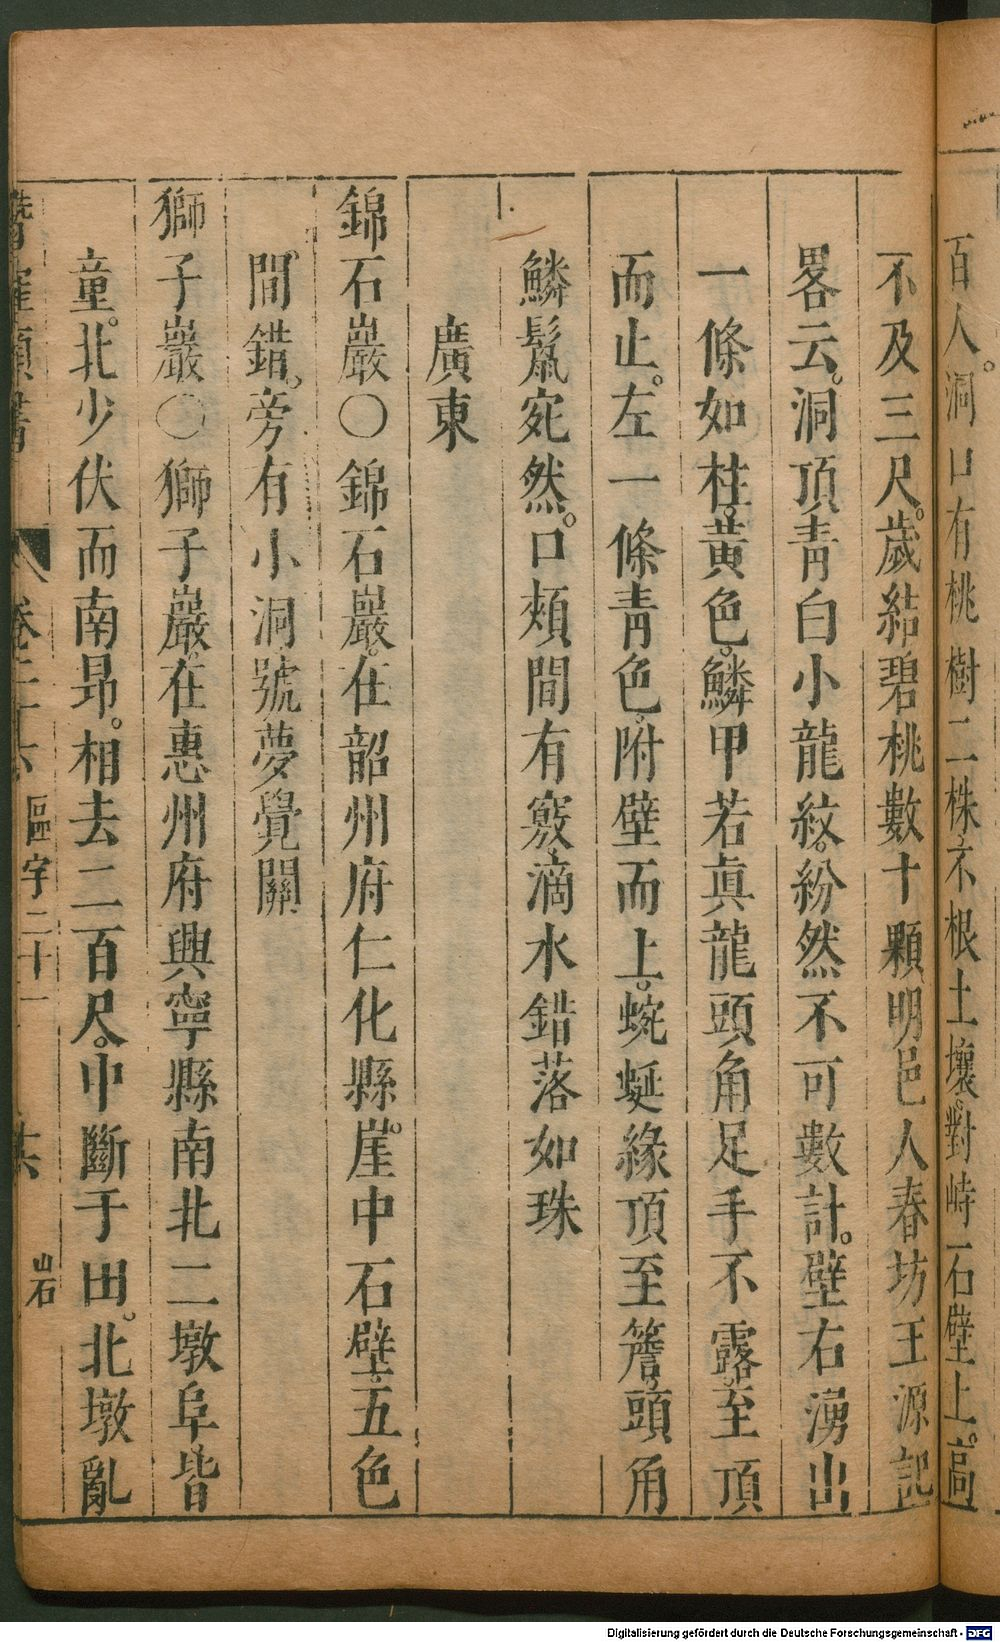 百人。洞口有桃樹二株。不根土壤。對峙石壁上。高
不及三尺。歲結碧桃數十顆明邑人春坊王源記
畧云。洞頂青白小龍紋。紛然不可數計。壁右湧出
一條如柱。黃色。鱗甲若眞龍頭角足手不露。至頂
而止。左一條青色。附壁而上。蜿蜒緣頂至簷。頭角
鱗鬣宛然。口頰間有竅。滴水錯落如珠
廣東
錦石巖〇錦石巖。在韶州府仁化縣崖。中石壁五色
間錯。旁有小洞號夢覺關
獅子巖〇獅子巖。在惠州府興寧縣南北二墩阜皆
童。北少伏而南昻。相去二百尺。中斷于田。北墩亂
潛確類書
卷二十六
區宇二十一
共
岩
Digitalisierung gefördert durch die Deutsche Forschungsgemeinschaft - DFG